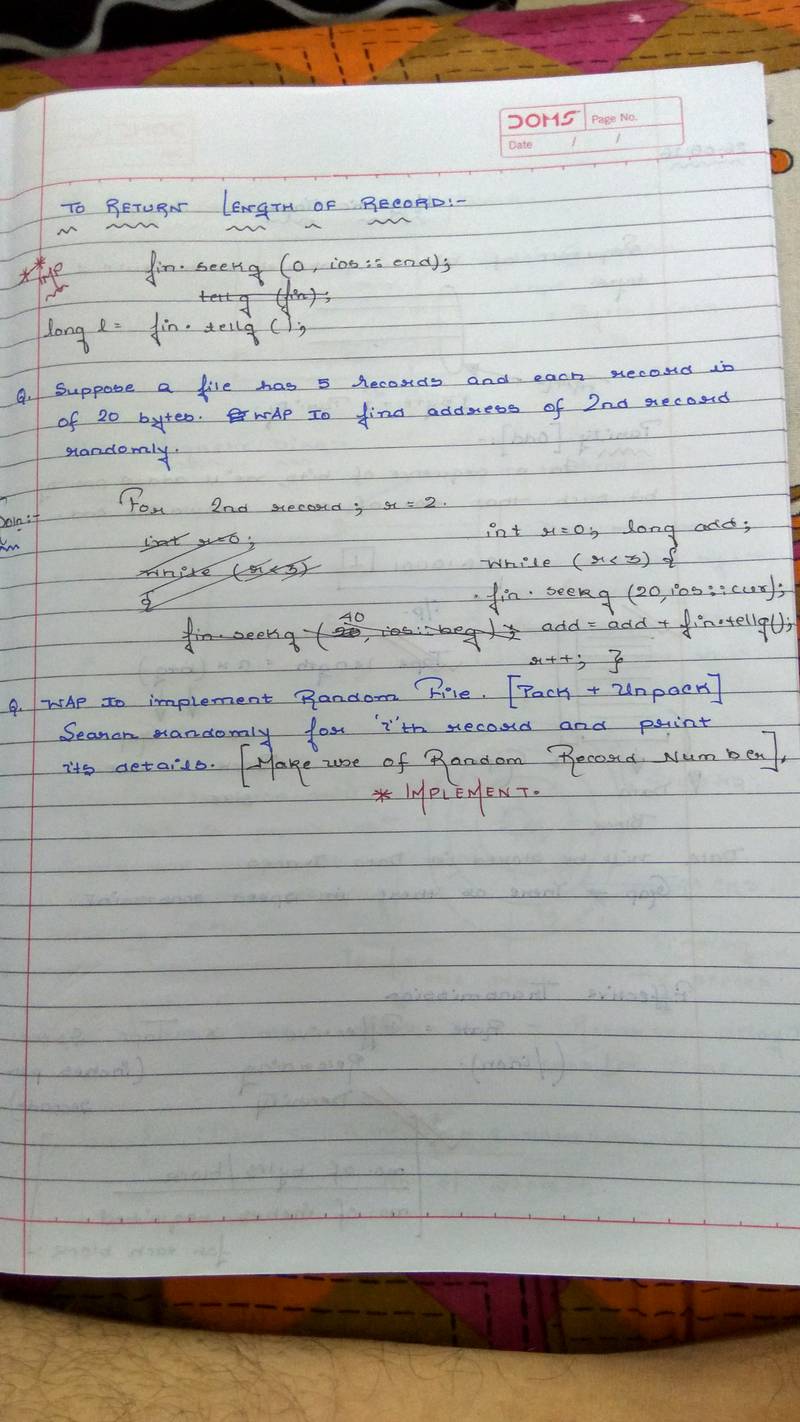 DOMS
Page No.
Date / /
TO RETURN LENGTH OF RECORD:-
** IMP
fin. seekg (0, ios::end);
tellg (fin);
long l = fin. tellg ();
Q. Suppose a file has 5 records and each record is
of 20 bytes. WAP to find address of 2nd record
randomly.
For 2nd record; r = 2.
int r=0;
while (r<3)
{
fin. seekg (20, ios::beg);
40
int r=0; long add;
while (r<3) {
fin. seekg (20, ios::cur);
add = add + fin.tellg();
r++; }
Q. WAP to implement Random File. [Pack + Unpack]
Search randomly for 'i'th record and print
its details. [Make use of Random Record Number].
* IMPLEMENT.